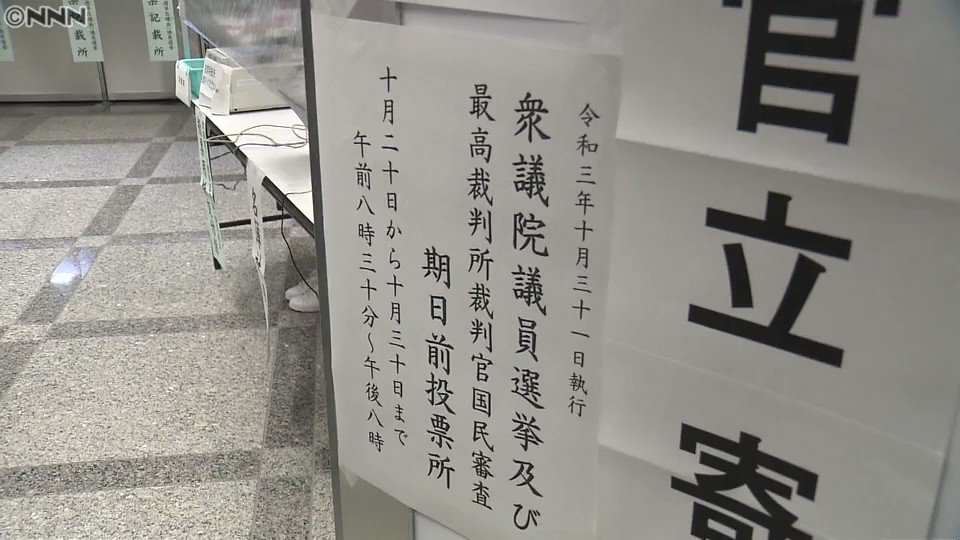 ©NNN
官立寄
令和三年十月三十一日執行
衆議院議員選挙及び
最高裁判所裁判官国民審査
期日前投票所
十月二十日から十月三十日まで
午前八時三十分~午後八時
票記載所
記載所